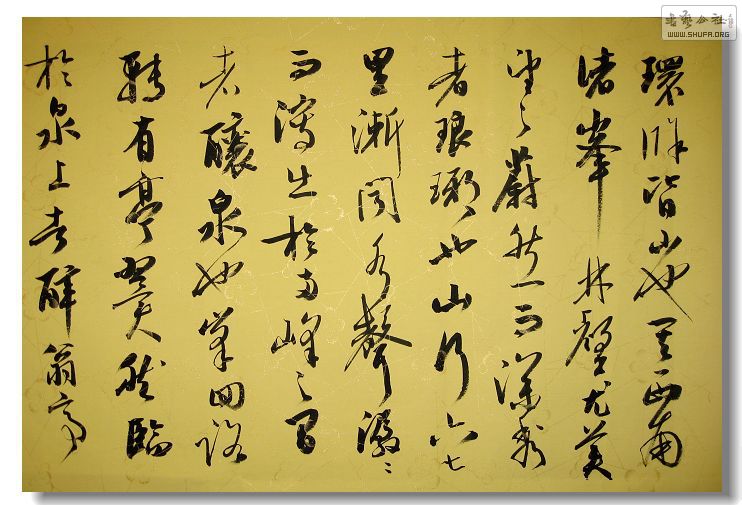 環滁皆山也其西南
诸峯林壑尤美
望之蔚然而深秀
者琅琊也山行六七
里漸闻水聲潺〻
而瀉出於两峰之间
者釀泉也峯回路
转有亭翼然臨
於泉上者醉翁亭
书艺公社
WWW.SHUFA.ORG